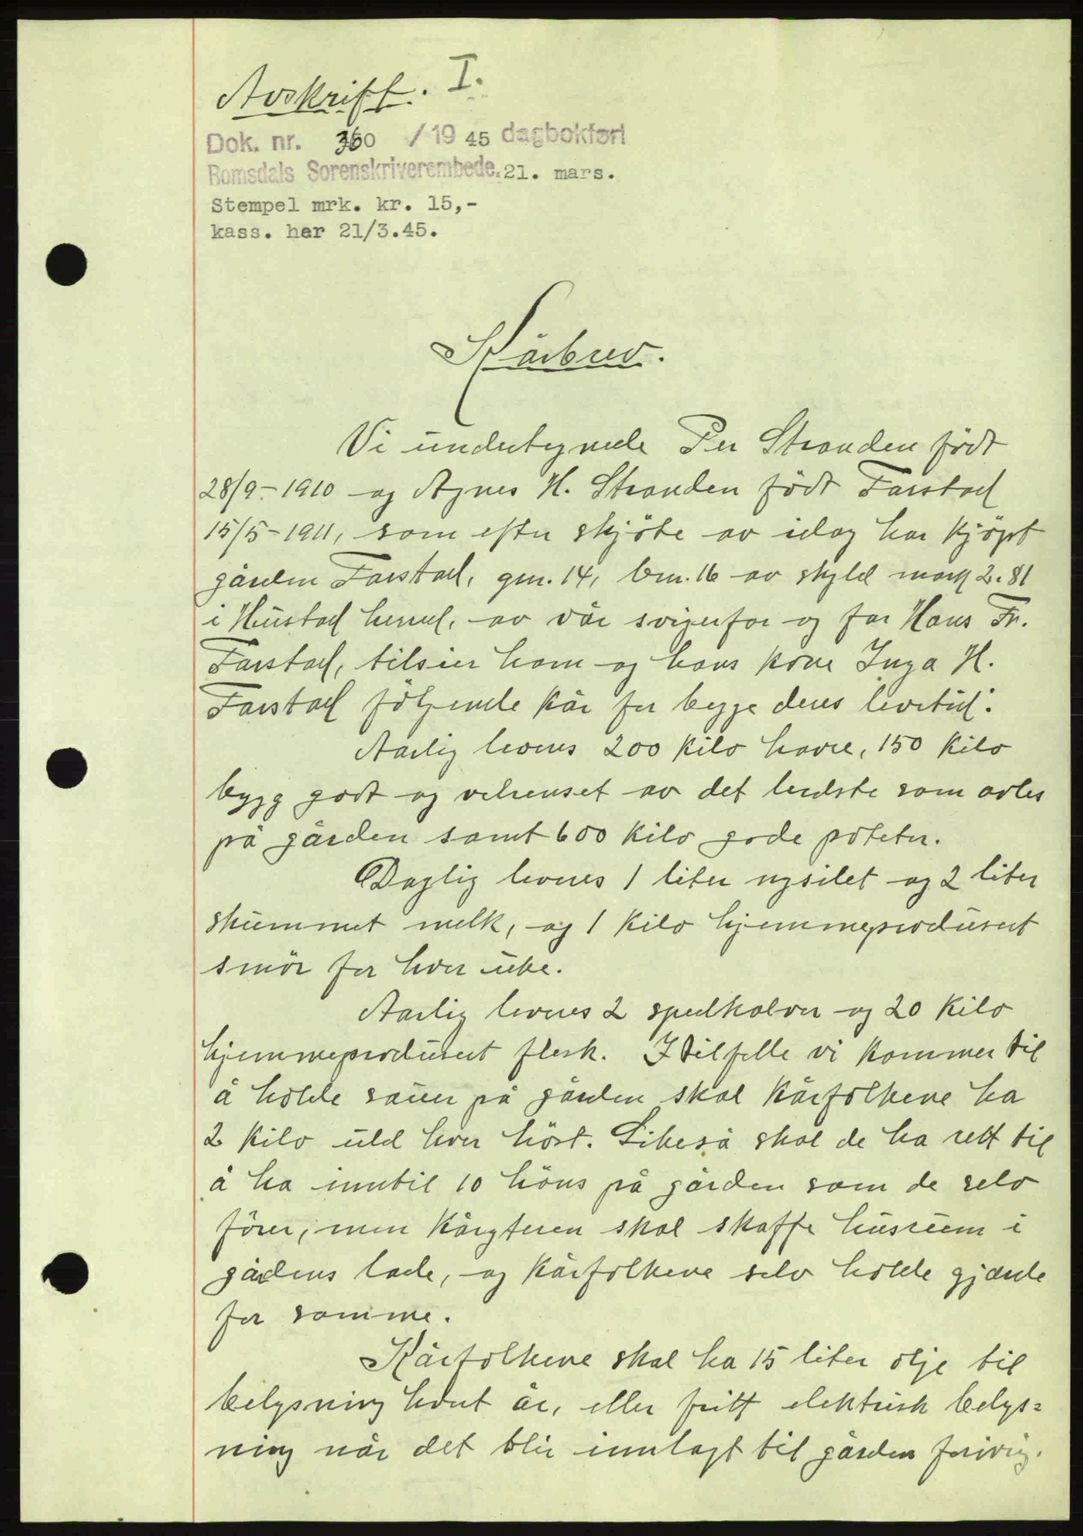 Avskrift. I.
Dok. nr. 360 / 19 45 dagbokført
Romsdals Sorenskriverembede. 21. mars.
Stempel mrk. kr. 15,-
kass. her 21/3.45.
Kårbrev.
Vi undertegnede Per Stranden födt
28/9-1910 og Agnes H. Stranden födt Farstad
15/5-1911, som efter skjöte av idag har kjöpt
gården Farstad, gnr. 14, bnr. 16 av skyld mark 2.81
i Hustad herred, av vår svigerfar og far Hans Fr.
Farstad, tilsier ham og hans kone Inga H.
Farstad fölgende kår for begge deres levetid:
Aarlig leveres 200 kilo havre, 150 kilo
bygg godt og velrenset av det bedste som avles
på gården samt 600 kilo gode poteter.
Daglig leveres 1 liter nysilet og 2 liter
skummet melk, og 1 kilo hjemmeprodusert
smör for hver uke.
Aarlig leveres 2 spedkalver og 20 kilo
hjemmeprodusert flesk. I tilfelle vi kommer til
å holde sauer på gården skal kårfolkene ha
2 kilo uld hver höst. Likeså skal de ha rett til
å ha inntil 10 höns på gården som de selv
förer, men kårgiveren skal skaffe husrum i
gårdens lade, og kårfolkene selv holde gjærde
for samme.
Kårfolkene skal ha 15 liter olje til
belysning hvert år, eller fritt elektrisk belys=
ning når det blir innlagt til gården forövrig.